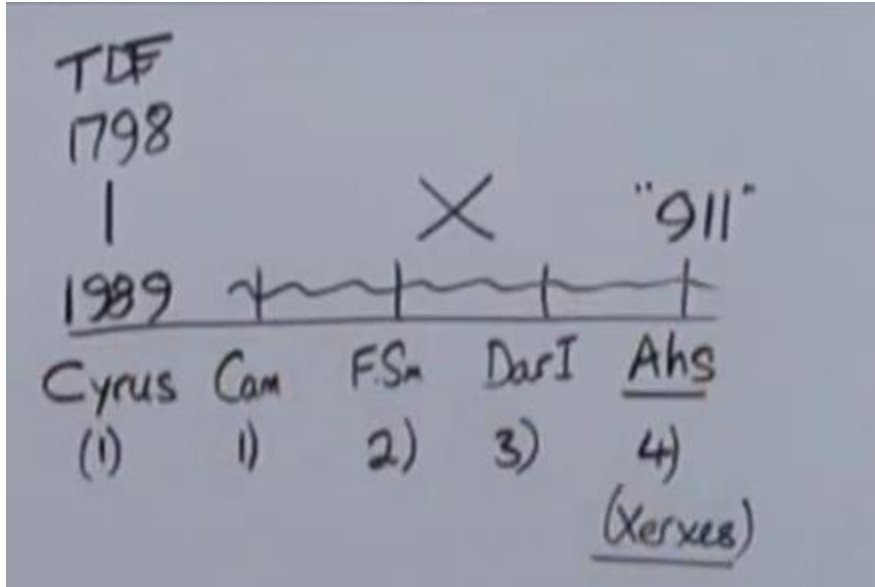 TOE
1798
X "911"
1989
Cyrus Cam F.Sm DarI Ahs
(1) 1) 2) 3) 4)
(Xerxes)